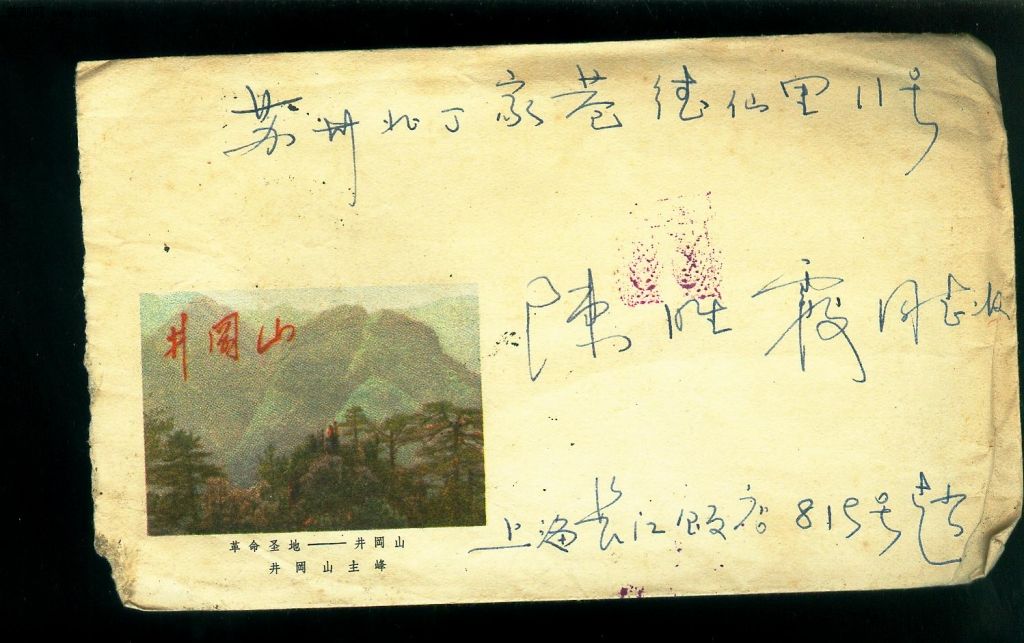 苏州北丁家巷德仙里11号
陳胜霞同志收
井岡山
上海长江饭店815号赵
革命圣地——井岡山
井岡山主峰